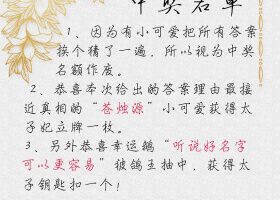 中奖名单
1、因为有小可爱把所有答案
挨个猜了一遍，所以视为中奖
名额作废。
2、恭喜本次给出的答案理由最接
近真相的“苍烛源”小可爱获得太
子妃立牌一枚。
3、另外恭喜幸运鹅“听说好名字
可以更容易”被鸽王抽中，获得太
子钥匙扣一个！